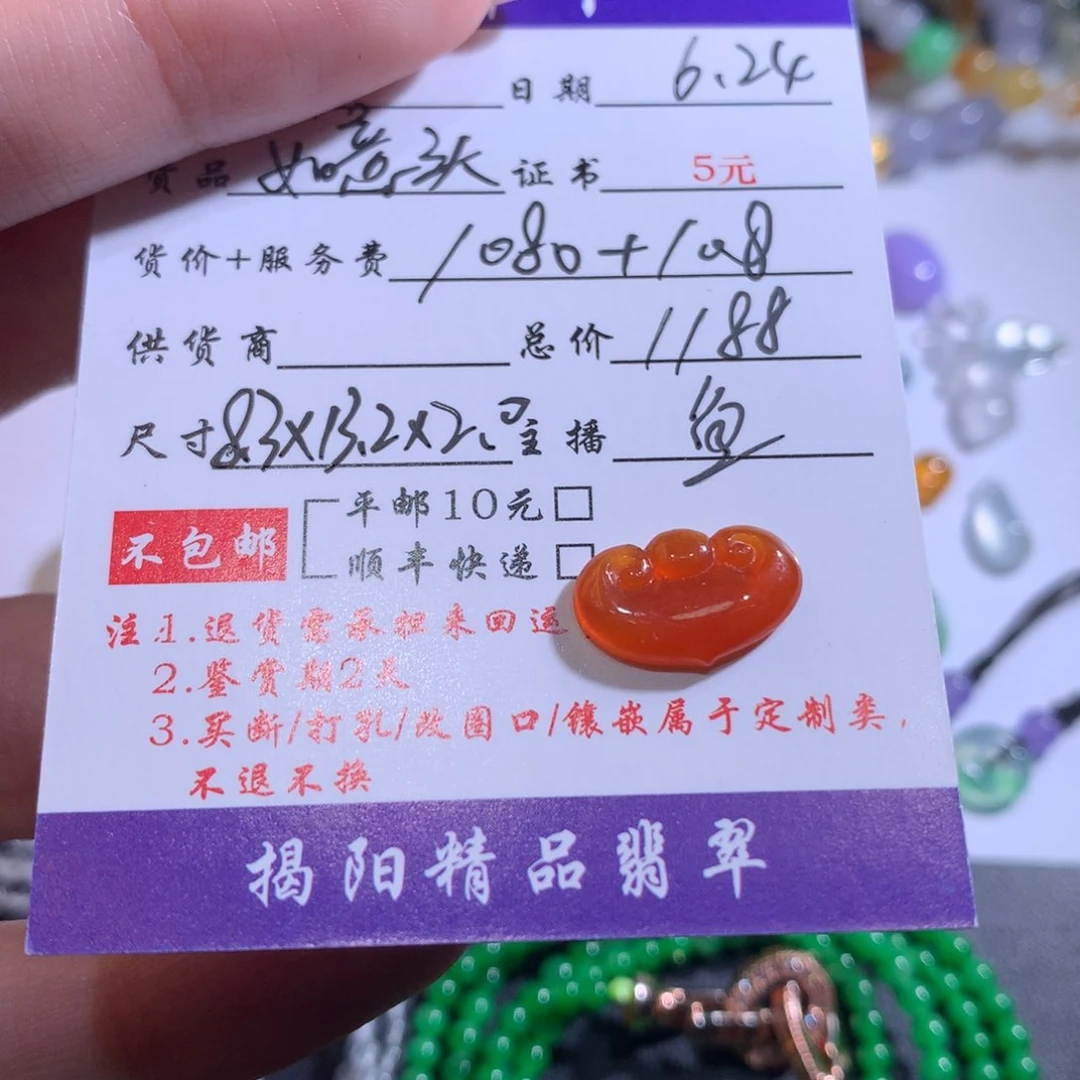 日期 6.24
货品 如意头 证书 5元
货价+服务费 1080+108
供货商 总价 1188
尺寸 8.3×13.2×2.0 主播
不包邮 平邮10元□
顺丰快递□
注:1.退货需承担来回运
2.鉴赏期2天
3.买断/打孔/改圈口/镶嵌属于定制类,
不退不换
揭阳精品翡翠